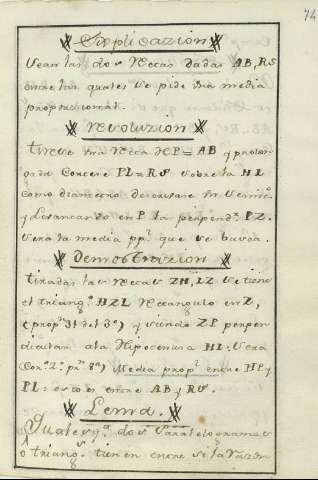 74
Explicazion
Sean las dos Rectas dadas AB, RS
entre las quales se pide una media
proporcional.
Resoluzion
Tirese una Recta HP = AB y prolon-
gada Cortese PL = RS sobre la HL
como diametro descrivase un semicº
y Levantando en P la perpendr PZ.
sera la media ppl que se busca.
Demostrazion
Tiradas las Rectas ZH, LZ se tiene
el triangº HZL Rectangulo en Z,
(propn 31 del 3º) y siendo ZP perpen
dicular ala Hipotenusa HL, sera
Media propl entre HP y
PL: esto es entre AB y RS.
Lema.
dos Paralelogramos
o triangs tienen entre si la razon